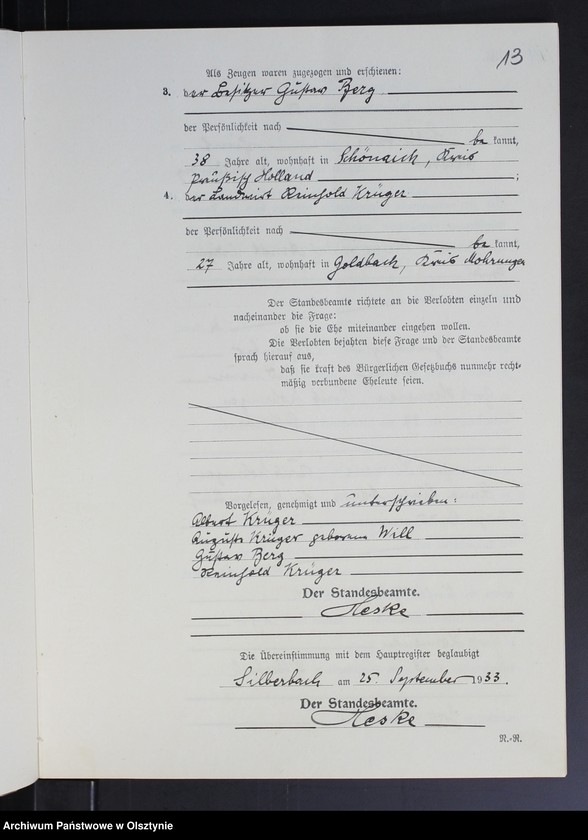 13
Als Zeugen waren zugezogen und erschienen:
3. der Besitzer Gustav Berg
der Persönlichkeit nach
be kannt,
38 Jahre alt, wohnhaft in Schönaich, Kreis
Preußisch Holland ;
4. der Landwirt Reinhold Krüger
der Persönlichkeit nach
be kannt,
27 Jahre alt, wohnhaft in Goldbach, Kreis Mohrungen
Der Standesbeamte richtete an die Verlobten einzeln und
nacheinander die Frage:
ob sie die Ehe miteinander eingehen wollen.
Die Verlobten bejahten diese Frage und der Standesbeamte
sprach hierauf aus,
daß sie kraft des Bürgerlichen Gesetzbuchs nunmehr recht-
mäßig verbundene Eheleute seien.
Vorgelesen, genehmigt und unterschrieben:
Albert Krüger
Auguste Krüger geborene Will
Gustav Berg
Reinhold Krüger
Der Standesbeamte.
Heske
Die Übereinstimmung mit dem Hauptregister beglaubigt
Silberbach am 25. September 1933.
Der Standesbeamte.
Heske
R.-R.
Archiwum Państwowe w Olsztynie